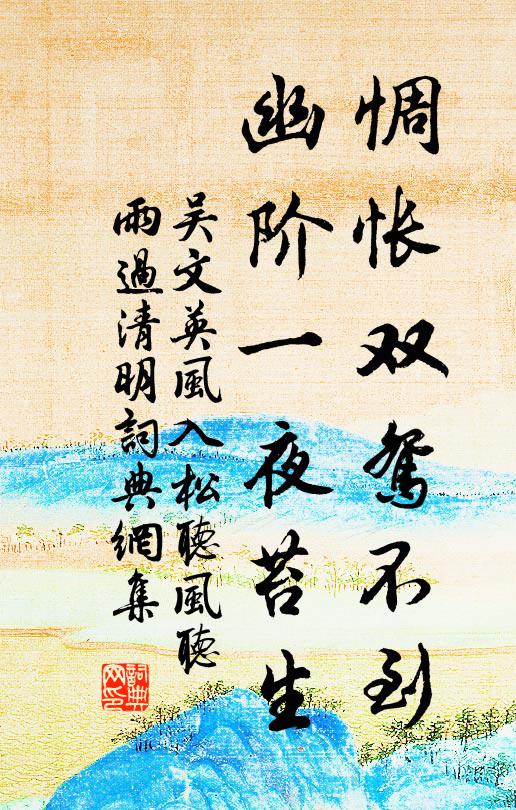 惆怅双鸳不到
幽阶一夜苔生
吴文英風入松聽風聽
雨過清明詞典網集
詞典网印